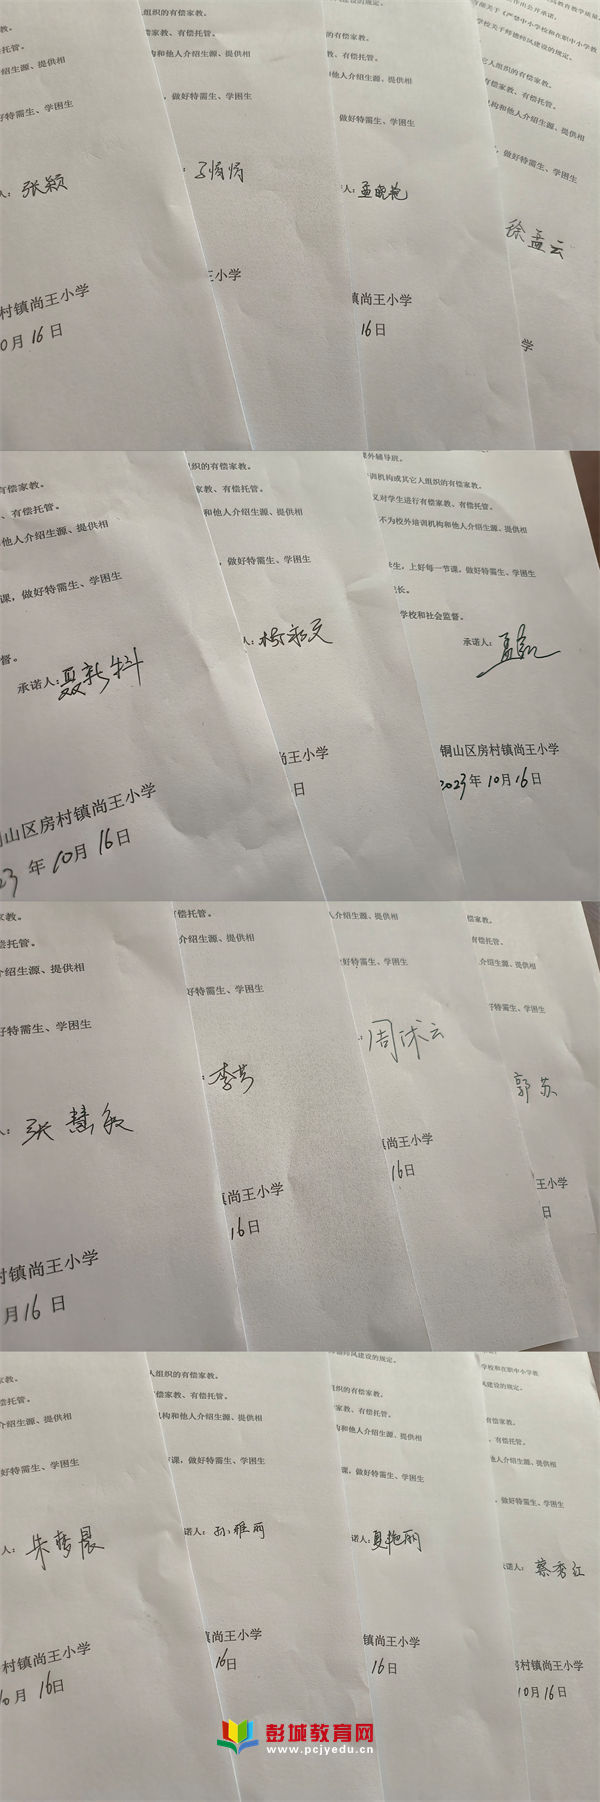 组织的有偿家教。
托管。
绍生源、提供相
好特需生、学困生
人：张颖
村镇尚王小学
0月16日
组织的有偿家教。
家教、有偿托管。
构和他人介绍生源、提供相
做好特需生、学困生
王小学
人组织的有偿家教。
教、有偿托管。
和他人介绍生源、提供相
做好特需生、学困生
人：孟晓艳
镇尚王小学
16日
学校关于师德师风建设的规定。
它人组织的有偿家教。
有偿家教、有偿托管。
机构和他人介绍生源、提供相
，做好特需生、学困生
徐孟云
学
有偿家教。
、有偿托管。
他人介绍生源、提供相
课，做好特需生、学困生
督。
承诺人：聂新科
山区房村镇尚王小学
23年10月16日
组织的有偿家教。
家教、有偿托管。
和他人介绍生源、提供相
，做好特需生、学困生
尚王小学
日
课外辅导班。
培训机构或其它人组织的有偿家教。
义对学生进行有偿家教、有偿托管。
不为校外培训机构和他人介绍生源、提供相
生，上好每一节课，做好特需生、学困生
长。
学校和社会监督。
承诺人：
铜山区房村镇尚王小学
2023年10月16日
家教。
偿托管。
介绍生源、提供相
好特需生、学困生
人：张慧敏
村镇尚王小学
月16日
有偿托管。
介绍生源、提供相
好特需生、学困生
：李芳
镇尚王小学
16日
人介绍生源、提供相
做好特需生、学困生
镇尚王小学
16日
偿家教。
有偿托管。
人介绍生源、提供相
好特需生、学困生
郭苏
王小学
日
家教。
偿托管。
介绍生源、提供相
好特需生、学困生
人：朱梦晨
村镇尚王小学
10月16日
人组织的有偿家教。
家教、有偿托管。
机构和他人介绍生源、提供相
课，做好特需生、学困生
诺人：孙雅丽
镇尚王小学
16日
师风建设的规定。
组织的有偿家教。
家教、有偿托管。
构和他人介绍生源、提供相
课，做好特需生、学困生
诺人：夏艳丽
镇尚王小学
16日
学校和在职中小学教
风建设的规定。
有偿家教。
、有偿托管。
他人介绍生源、提供相
，做好特需生、学困生
承诺人：蔡秀红
房村镇尚王小学
10月16日
彭城教育网
www.pcjyedu.cn